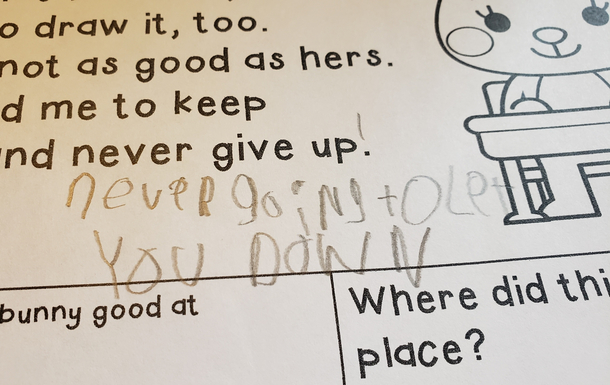 o draw it, too.
not as good as hers.
d me to keep
nd never give up!
never going to let
YOU DOWN
bunny good at
Where did thi
place?